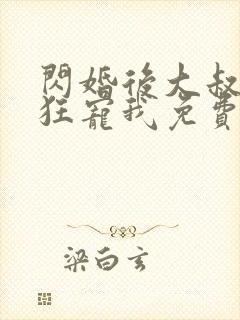 閃婚後大叔
狂寵我免費
梁白玄